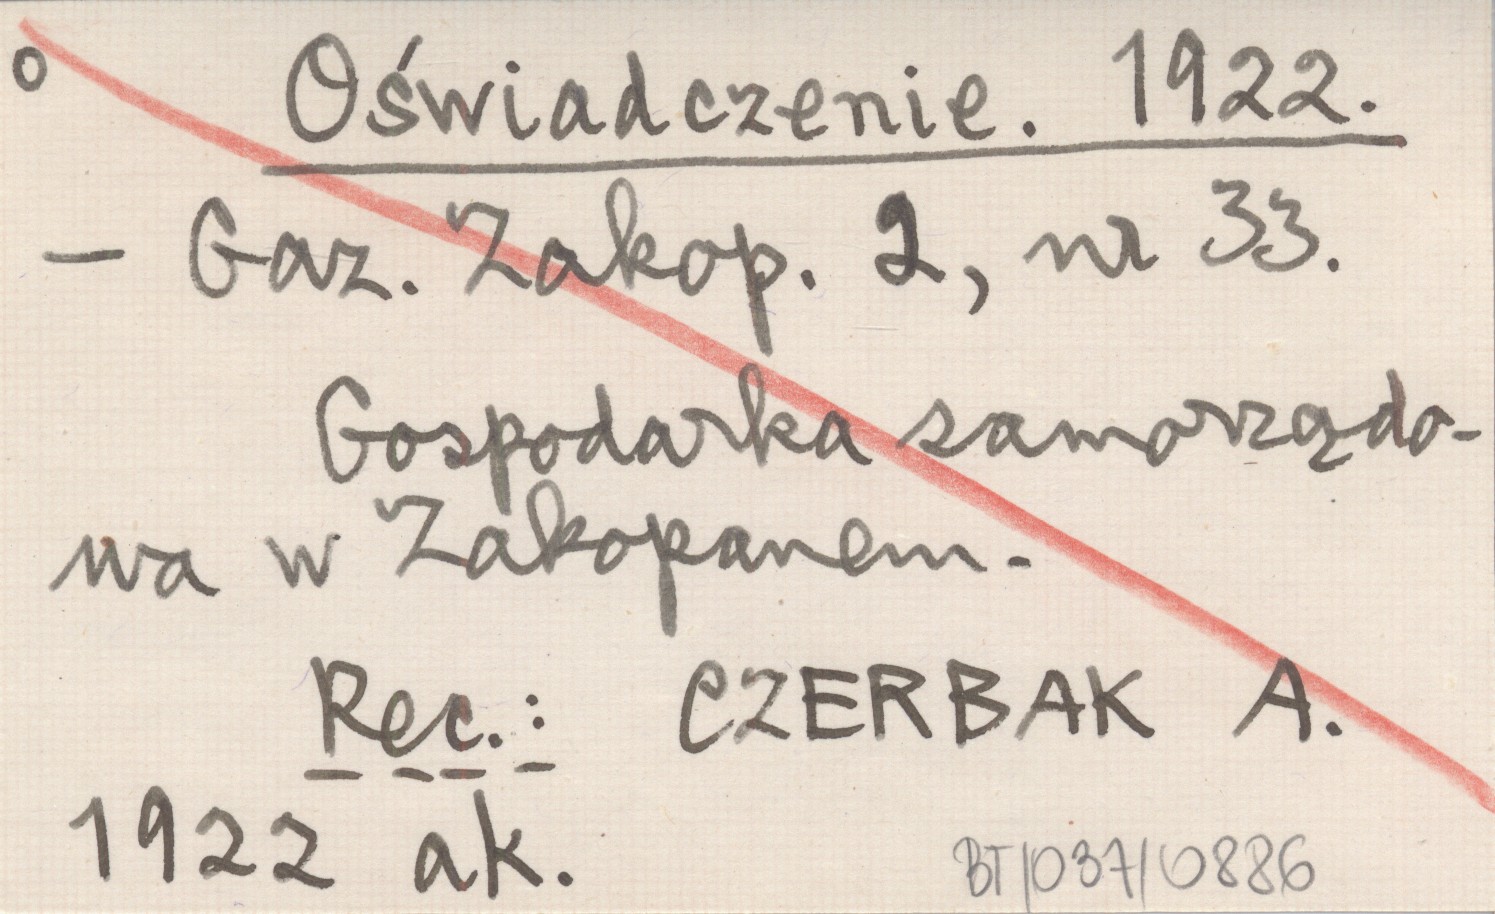 o Oświadczenie. 1922.
- Gaz. Zakop. 2, nr 33.
Gospodarka samorządo-
wa w Zakopanem.
Rec.: CZERBAK A.
1922 ak.
BT/037/0886